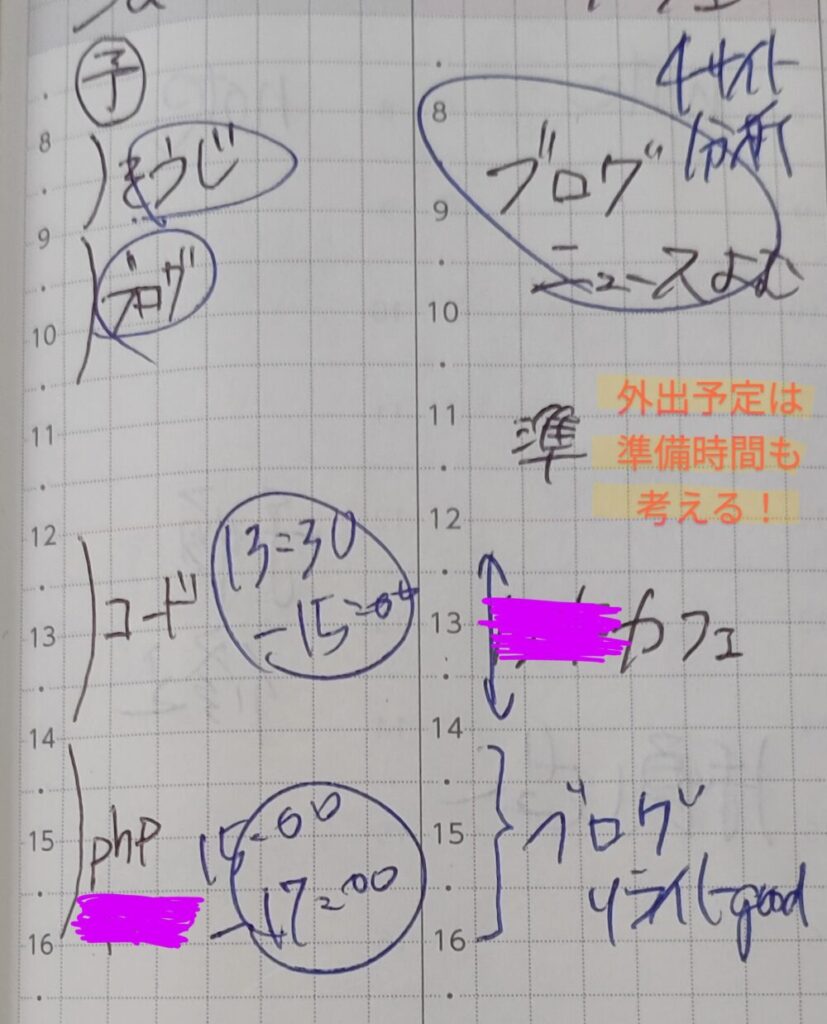 予
8
そうじ
9
ブログ
10
11
12
13=30
コード
-15=00
13
14
15=00
php
15
-17=00
16
4サイト
分析
8
ブログ
9
ニュースよむ
10
11
準
外出予定は
準備時間も
考える！
12
13
カフェ
14
ブログ
15
リライトgood
16